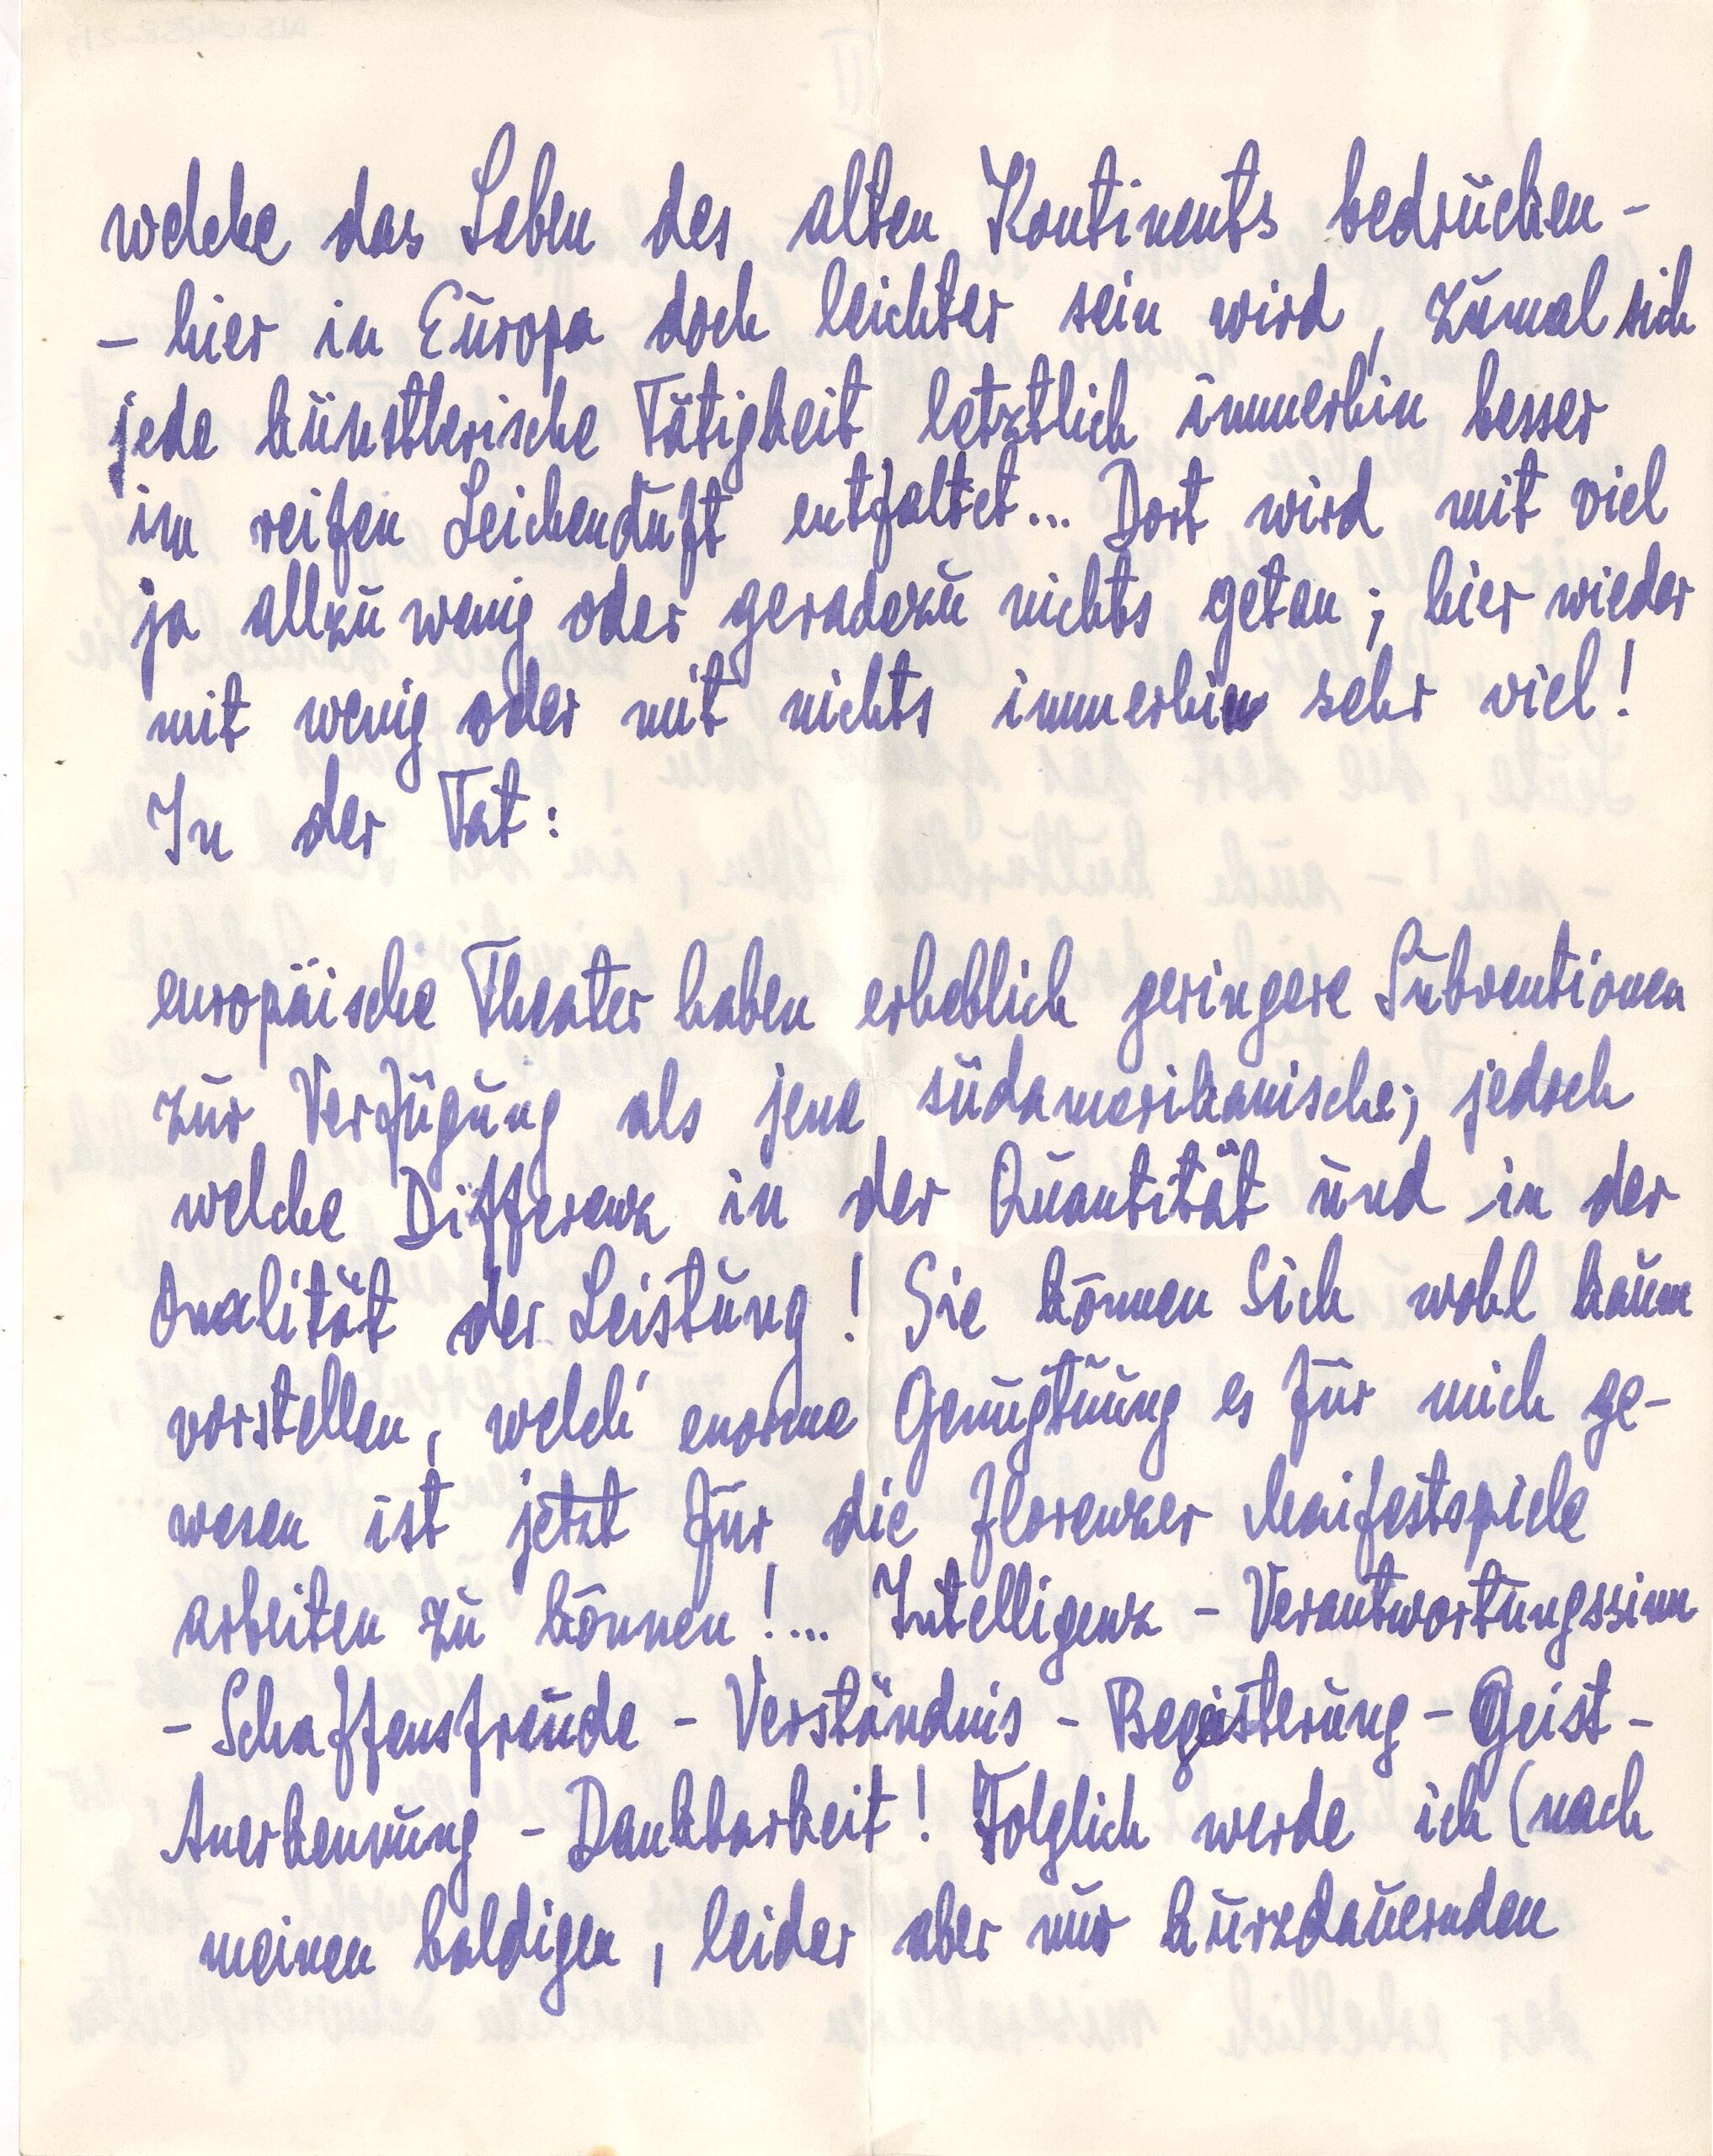 welche das Leben des alten Kontinents bedrücken -
- hier in Europa doch leichter sein wird, zumal sich
jede künstlerische Tätigkeit letztlich immerhin besser
im reifen Leichenduft entfaltet... Dort wird mit viel
ja allzu wenig oder geradezu nichts getan; hier wieder
mit wenig oder mit nichts immerhin sehr viel!
In der Tat:
europäische Theater haben erheblich geringere Subventionen
zur Verfügung als jene südamerikanische; jedoch
welche Differenz in der Quantität und in der
Qualität der Leistung! Sie können Sich wohl kaum
vorstellen, welch' enorme Genugtuung es für mich ge-
wesen ist jetzt für die Florenzer Maifestspiele
arbeiten zu können!... Intelligenz - Verantwortungssinn
- Schaffensfreude - Verständnis - Begeisterung - Geist -
Anerkennung - Dankbarkeit! Folglich werde ich (nach
meinen baldigen, leider aber nur kurzdauernden